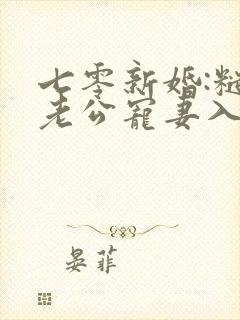 七零新婚:糙
老公宠妻入
晏菲